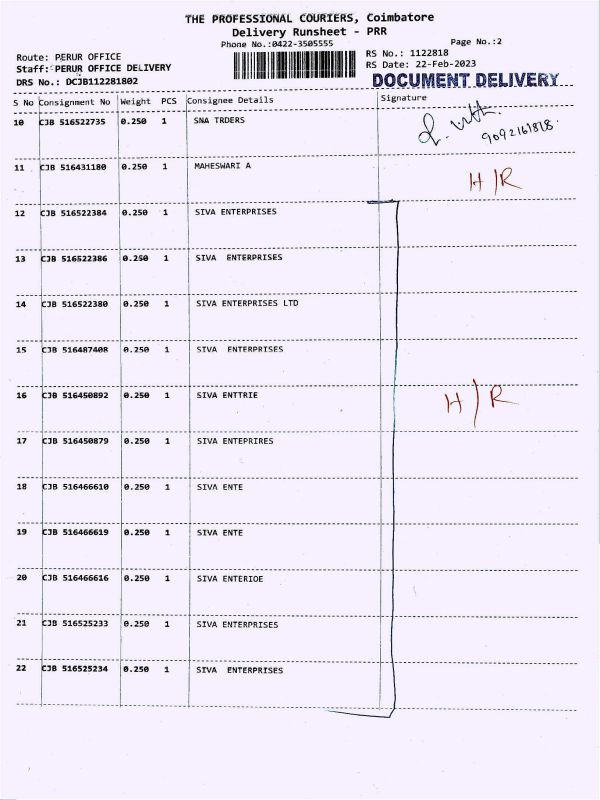 THE PROFESSIONAL COURIERS, Coimbatore
Delivery Runsheet - PRR
Phone No.:0422-3505555
Page No.:2
Route: PERUR OFFICE
RS No.: 1122818
Staff: PERUR OFFICE DELIVERY
RS Date: 22-Feb-2023
DRS No.: DCJB112281802
DOCUMENT DELIVERY
S No Consignment No Weight PCS Consignee Details Signature
10 CJB 516522735 0.250 1 SNA TRDERS
9092161818
11 CJB 516431180 0.250 1 MAHESWARI A H/R
12 CJB 516522384 0.250 1 SIVA ENTERPRISES
13 CJB 516522386 0.250 1 SIVA ENTERPRISES
14 CJB 516522380 0.250 1 SIVA ENTERPRISES LTD
15 CJB 516487408 0.250 1 SIVA ENTERPRISES
16 CJB 516450892 0.250 1 SIVA ENTTRIE H/R
17 CJB 516450879 0.250 1 SIVA ENTEPRIRES
18 CJB 516466610 0.250 1 SIVA ENTE
19 CJB 516466619 0.250 1 SIVA ENTE
20 CJB 516466616 0.250 1 SIVA ENTERIOE
21 CJB 516525233 0.250 1 SIVA ENTERPRISES
22 CJB 516525234 0.250 1 SIVA ENTERPRISES